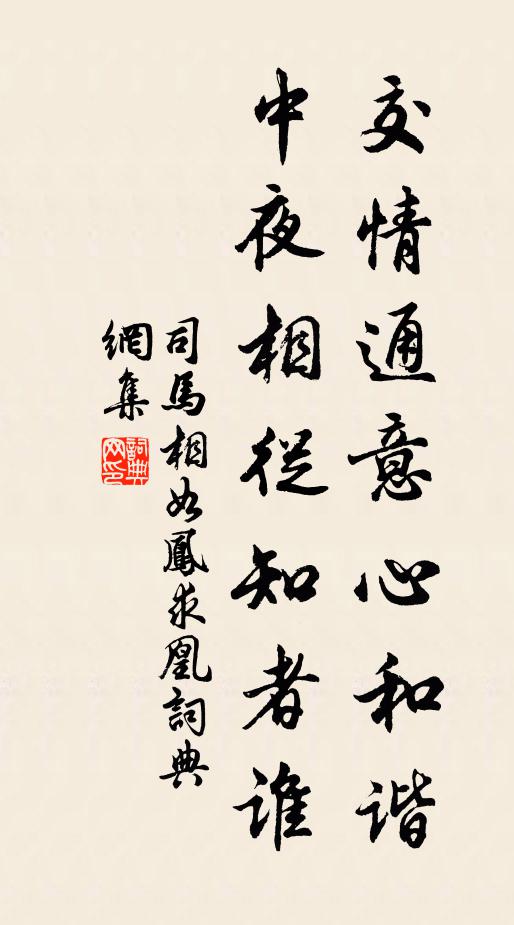 交情通意心和谐
中夜相從知者誰
司馬相如鳳求凰詞典
網集
詞典
网印